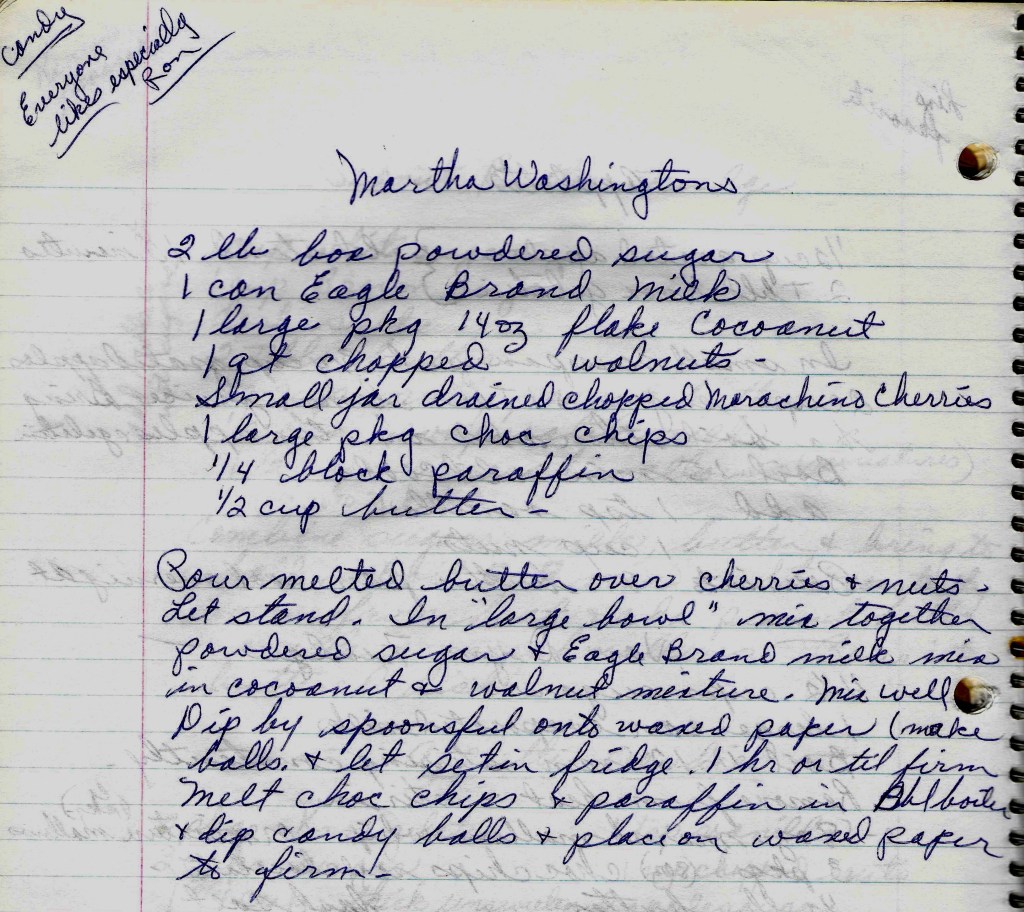 Candy
Everyone
likes especially
Ron
Martha Washingtons
2 lb box powdered sugar
1 can Eagle Brand Milk
1 large pkg 14oz flake Cocoanut
1 qt chopped walnuts -
Small jar drained chopped Marachino Cherries
1 large pkg choc chips
1/4 block paraffin
1/2 cup butter -
Pour melted butter over cherries & nuts.
Let stand. In "large bowl" mix together
powdered sugar & Eagle Brand milk mix
in cocoanut & walnut mixture. Mix well
Dip by spoonsful onto waxed paper (make
balls. & let set in fridge. 1 hr or til firm
Melt choc chips & paraffin in Dbl boiler
& dip candy balls & place on waxed paper
to firm -